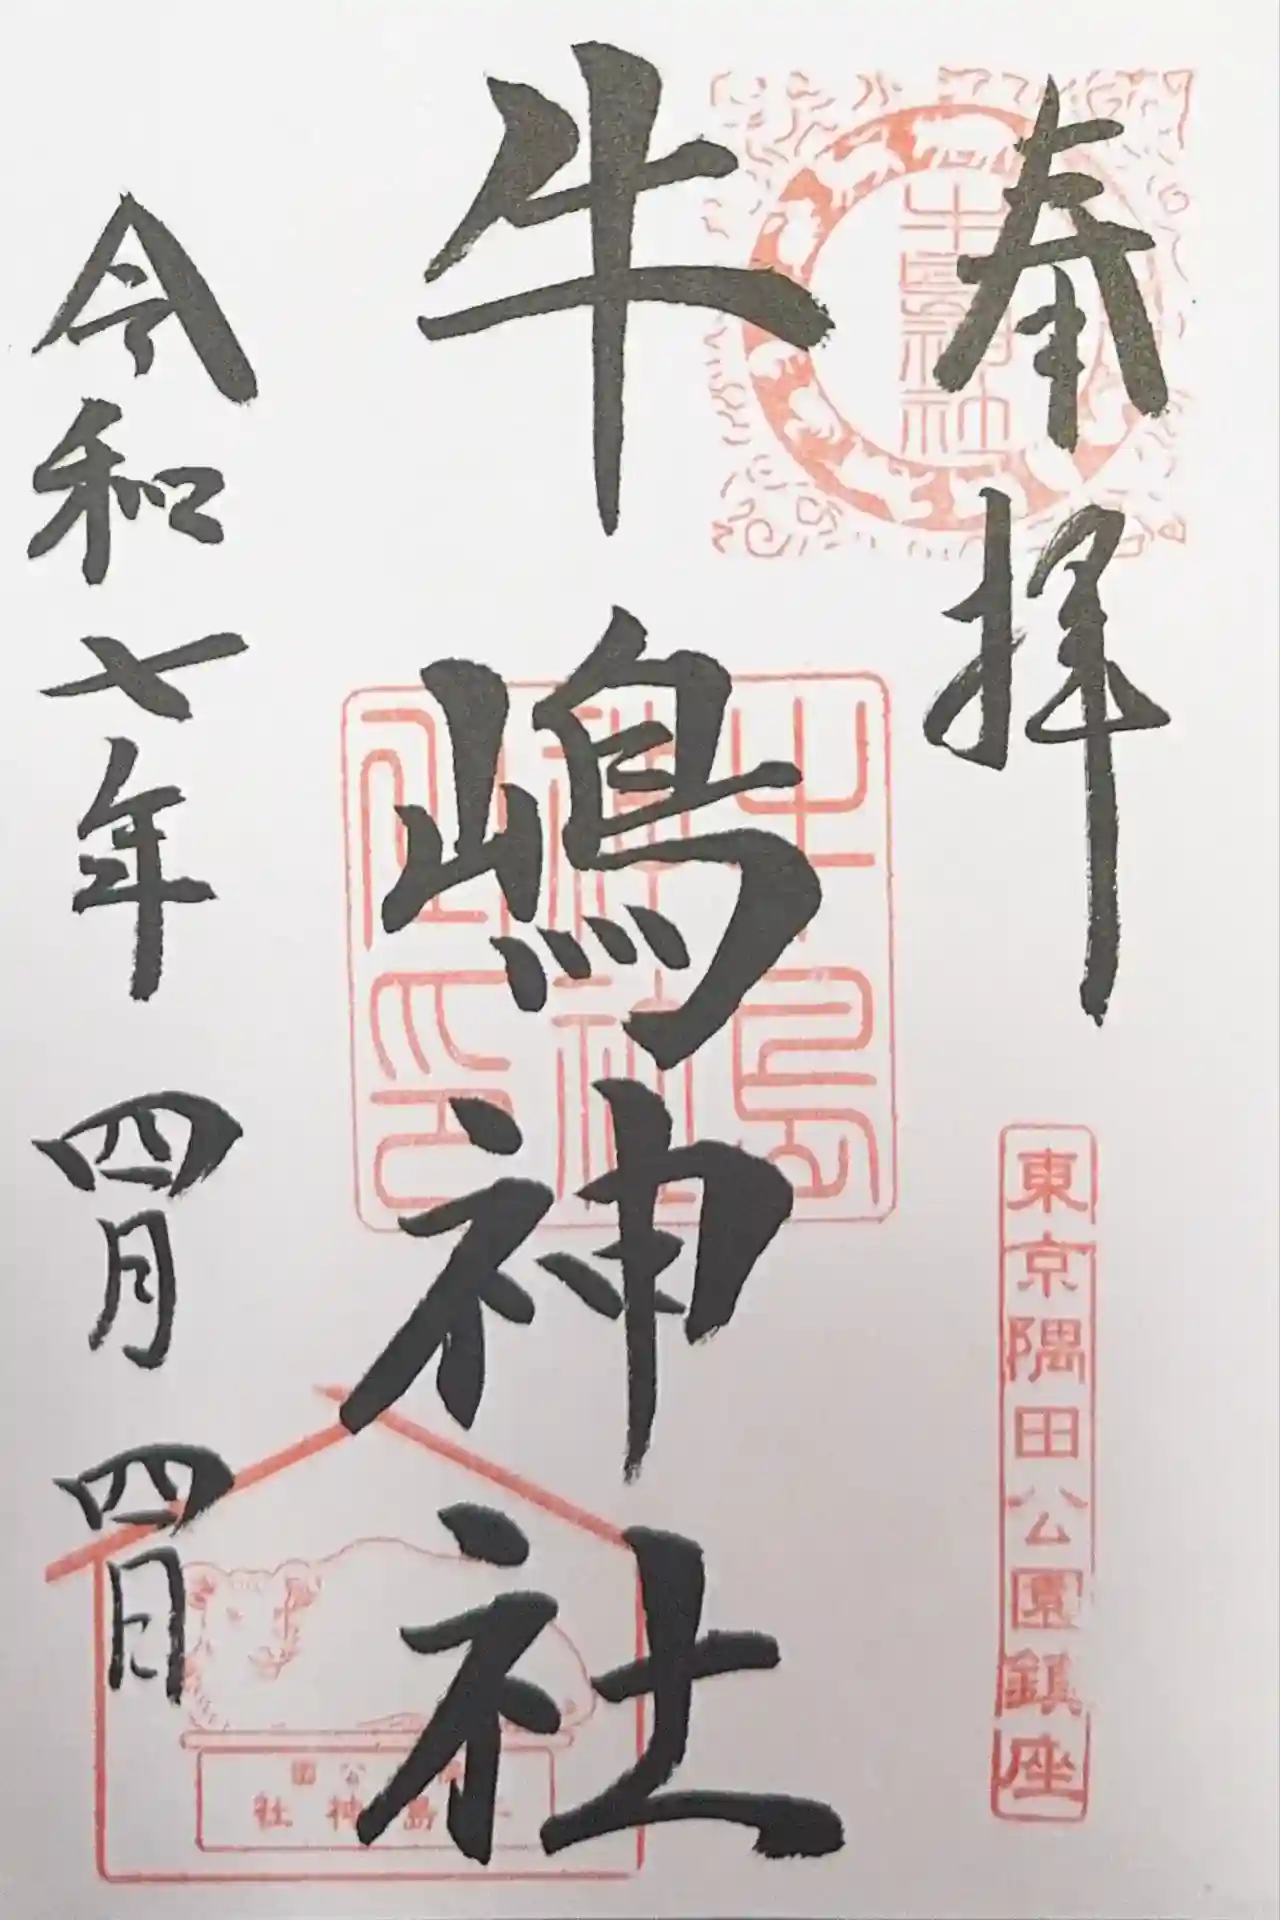 奉拝
東京隅田公園鎮座
牛嶋神社
牛嶋神社
牛島神社之印
令和七年 四月四日
園 公
社神島